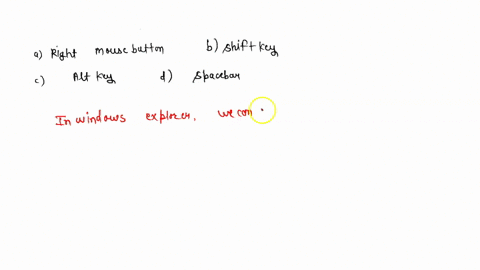 a) Right mouse button b) shift key
c) Alt key d) spacebar
In windows explorer, we can